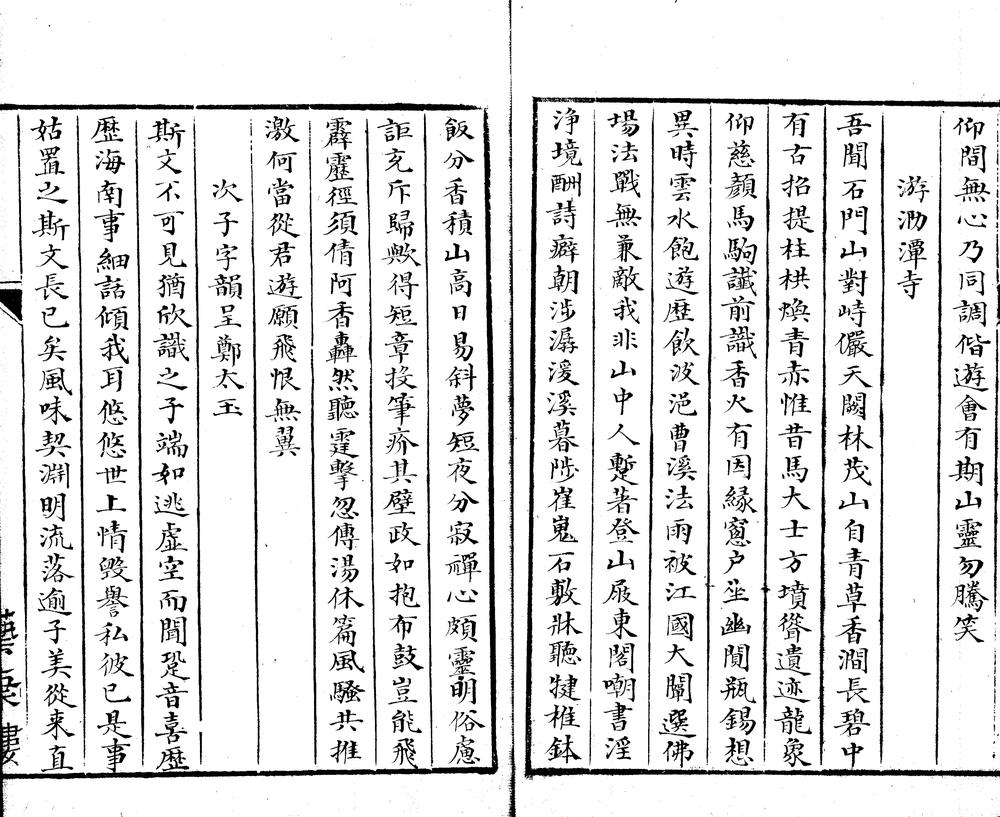 仰間無心乃同調偕遊會有期山靈勿騰笑
游泐潭寺
吾聞石門山對峙儼天闕林茂山自青草香澗長碧中
有古招提柱栱煥青赤惟昔馬大士方墳聳遺迹龍象
仰慈顏馬駒讖前識香火有因緣窻户坐幽閴瓶錫想
異時雲水飽遊歷飲波浥曹溪法雨被江國大闡選佛
場法戰無兼敵我非山中人蹔著登山屐東閣嘲書淫
淨境酬詩癖朝涉潺湲溪暮陟崔嵬石敷牀聽犍椎鉢
飯分香積山高日易斜夢短夜分寂禪心頗靈明俗慮
詎充斥歸歟得短章投筆疥其壁政如抱布鼓豈能飛
霹靂徑須倩阿香轟然聽霆擊忽傳湯休篇風騷共推
激何當從君遊願飛恨無翼
次子字韻呈鄭太玉
斯文不可見猶欣識之子端如逃虛空而聞跫音喜歷
歷海南事細話傾我耳悠悠世上情毀譽私彼已是事
姑置之斯文長已矣風味契淵明流落逾子美從來直